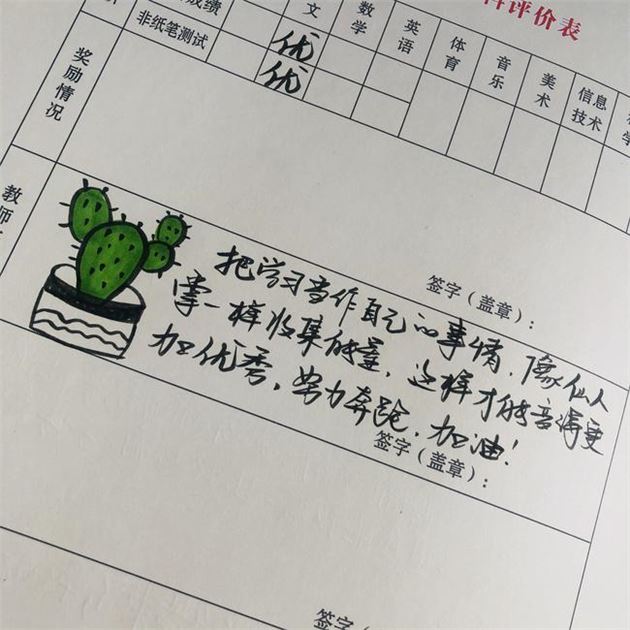 评价表
成绩
文
数学
英语
体育
音乐
美术
信息技术
非纸笔测试
优
优
奖励情况
签字（盖章）：
教师
把学习当作自己的事情，像仙人
掌一样收集能量，这样才能变得更
加优秀。努力奔跑，加油！
签字（盖章）：
签字